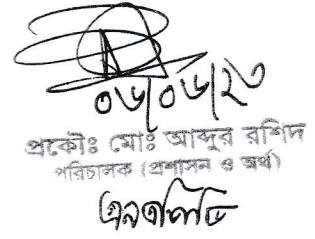 ০৬/০৬/২৩
প্রকৌঃ মোঃ আব্দুর রশিদ
পরিচালক (প্রশাসন ও অর্থ)